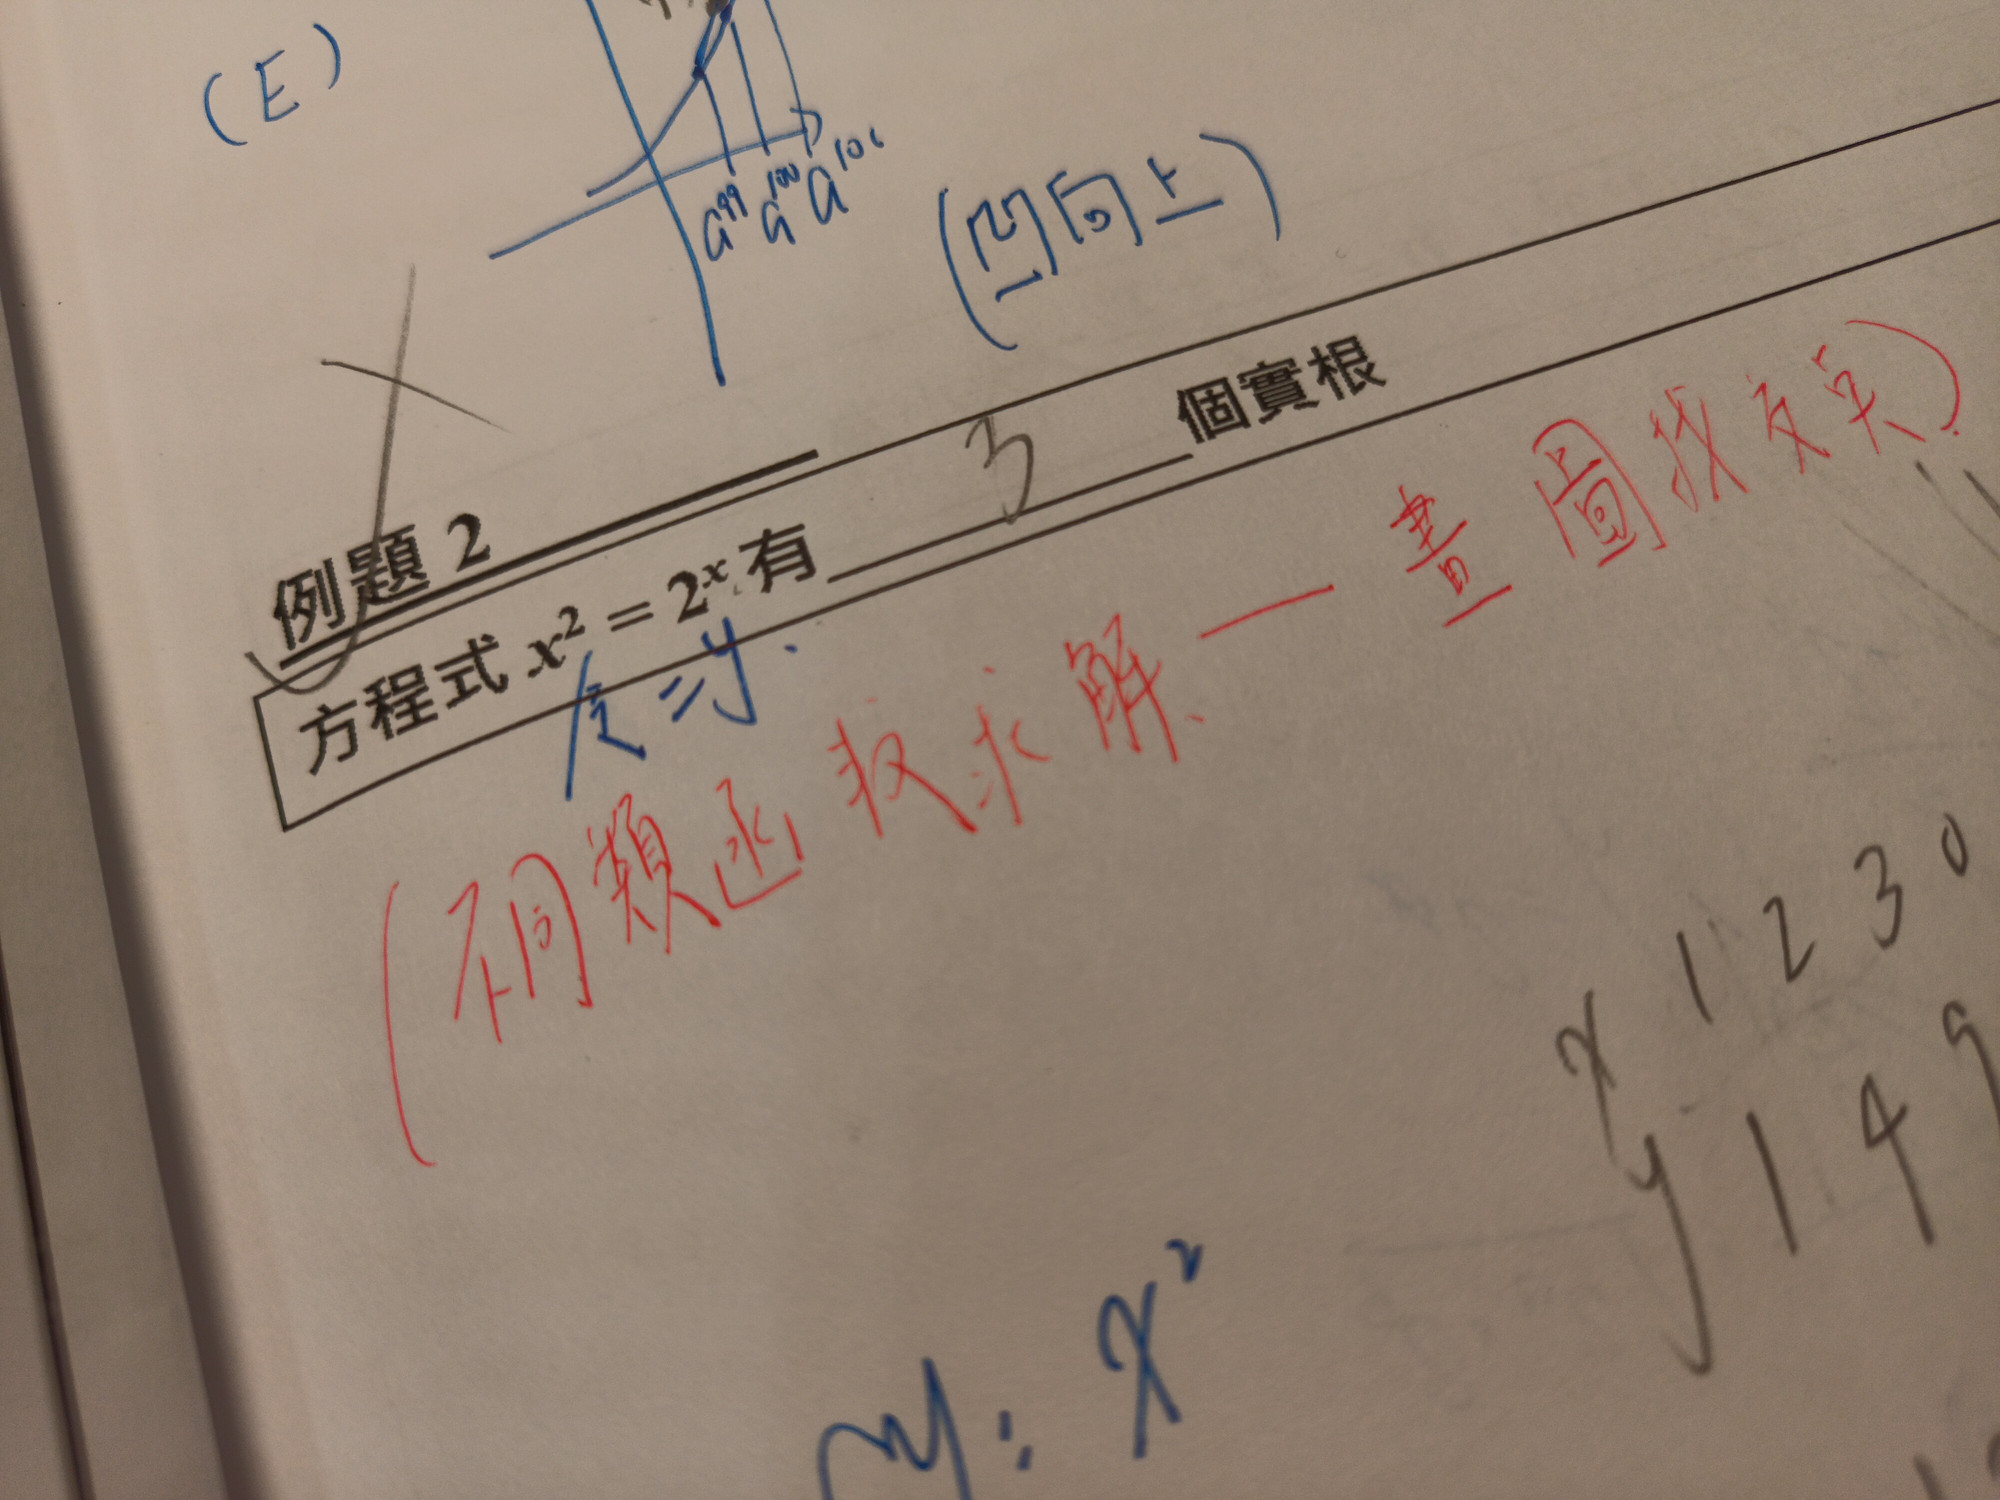 (E)
a⁹⁹ a¹⁰⁰ a¹⁰¹
(凹向上)
例題 2
方程式 x² = 2ˣ 有 3 個實根
令 = y
(不同類函數求解 — 畫圖找交點)
x 1 2 3 0
y 1 4 9
y = x²